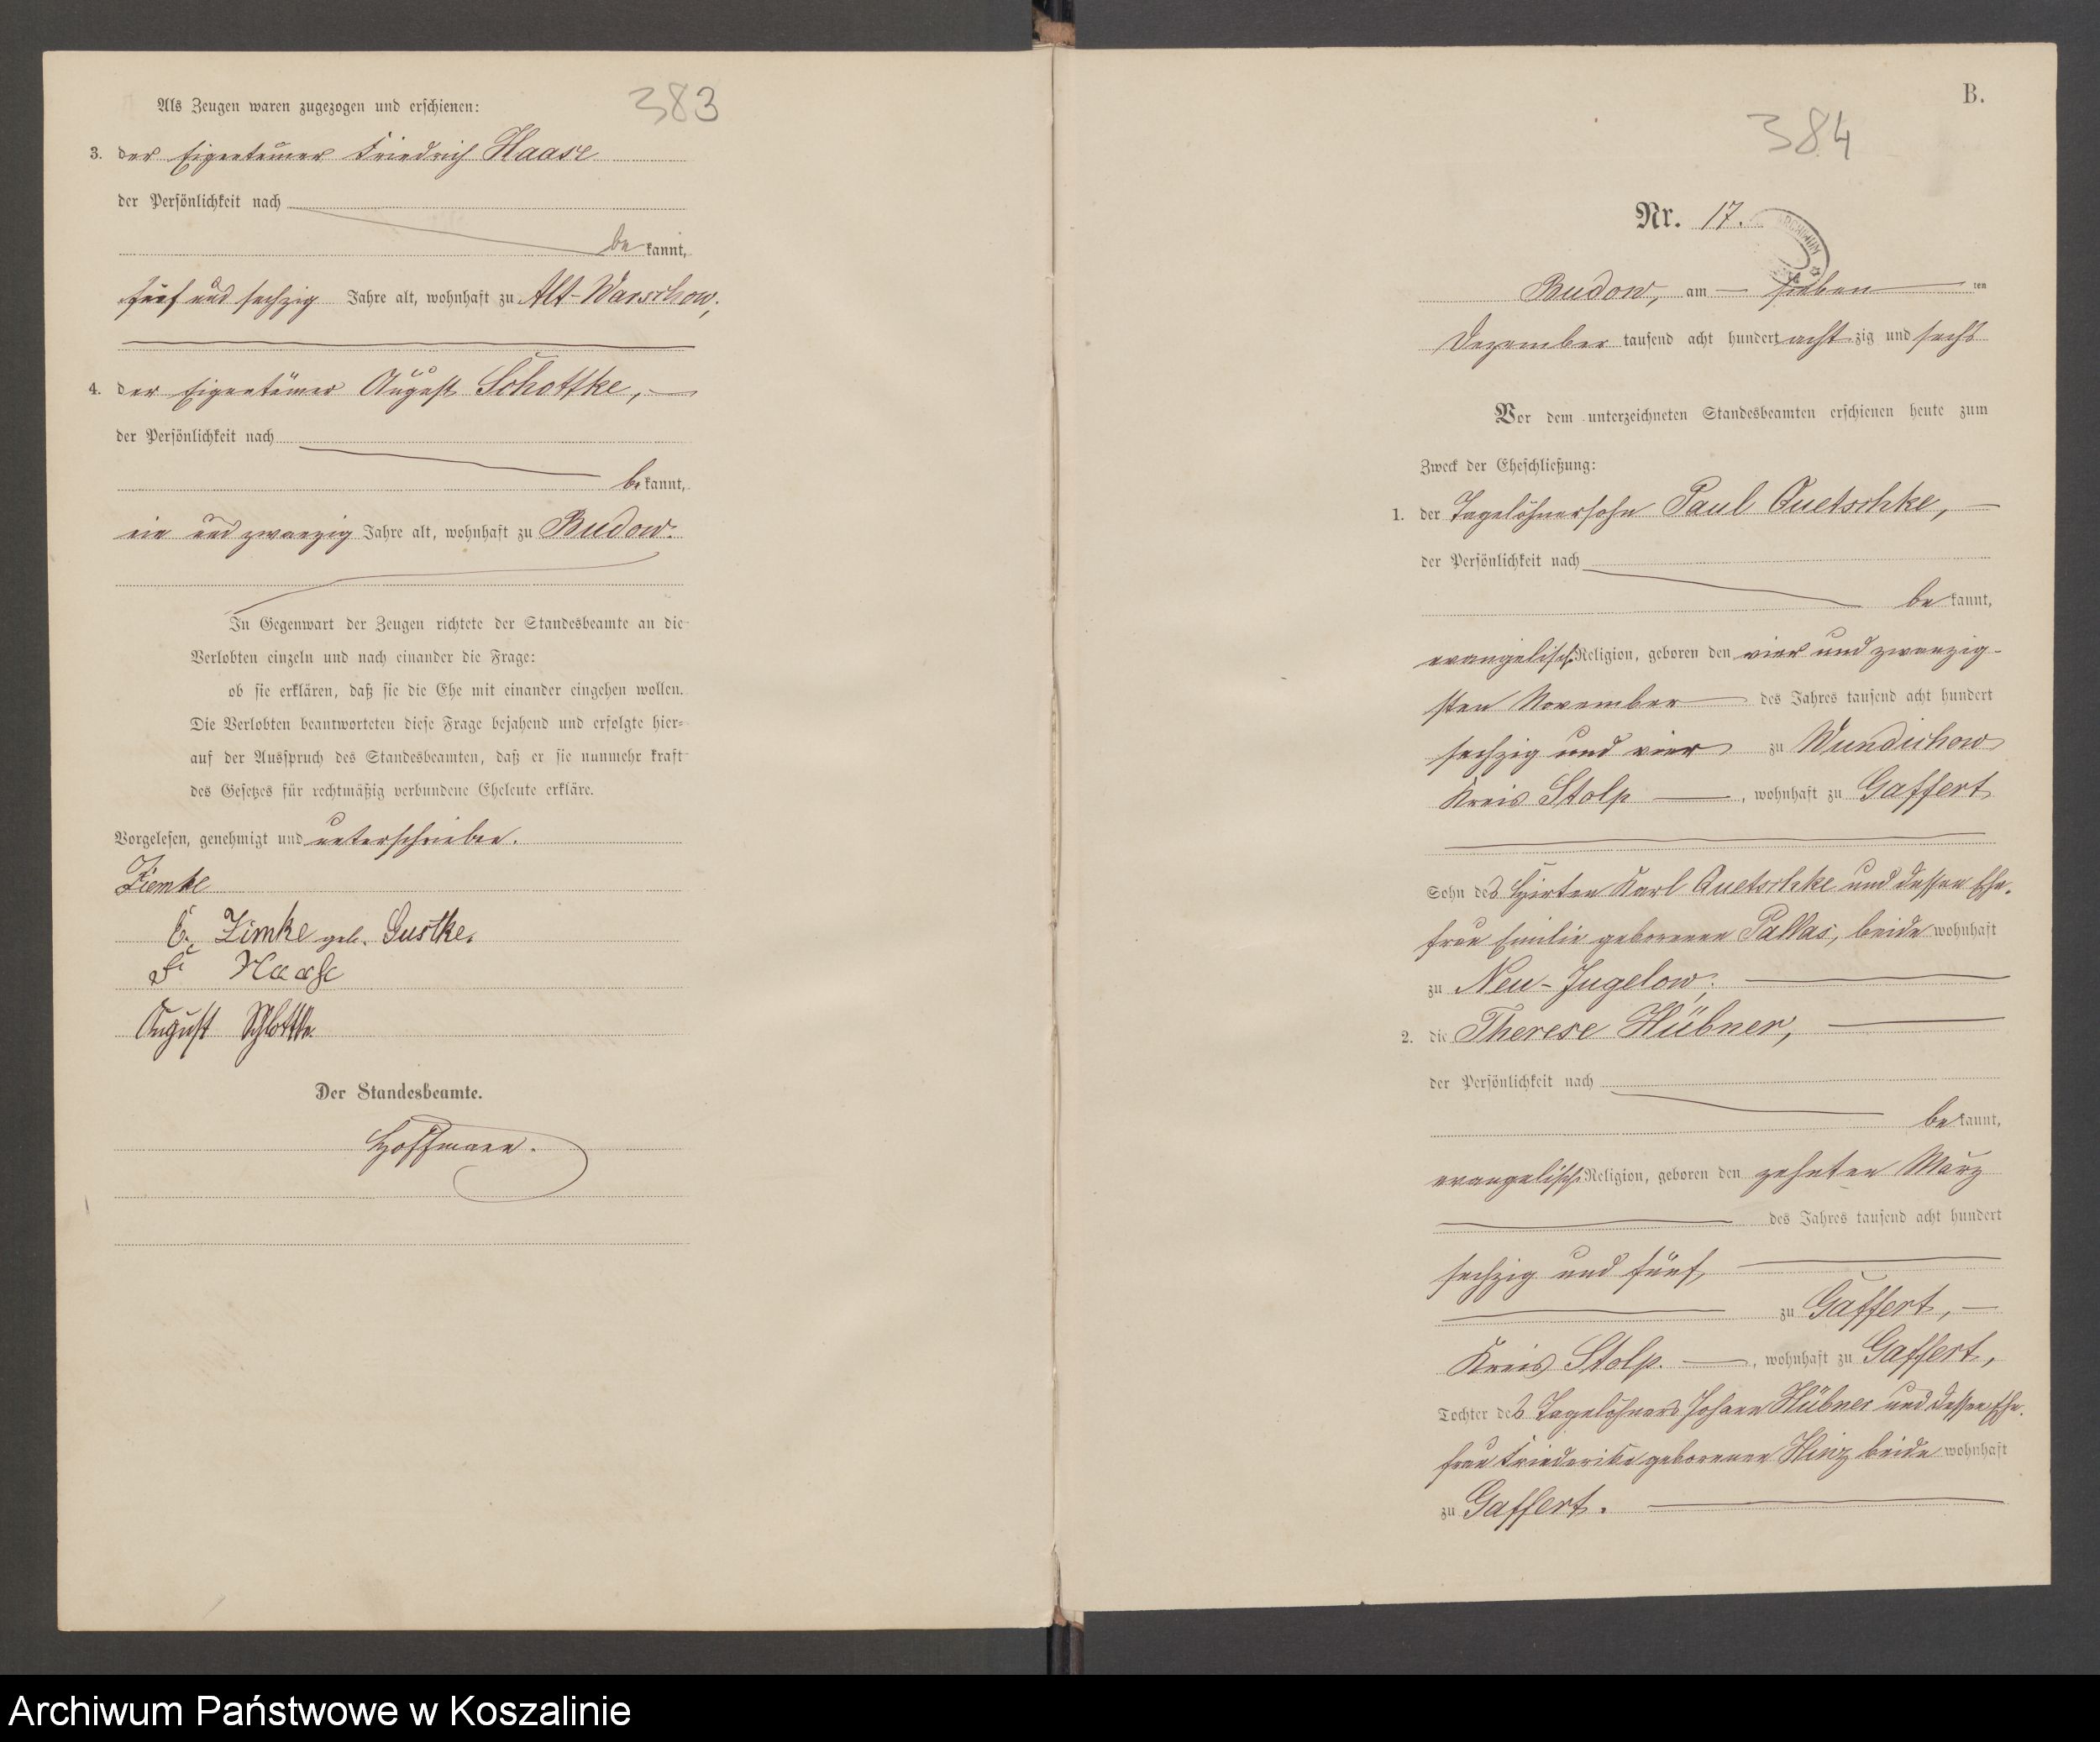 Als Zeugen waren zugezogen und erschienen:
383
3. der Eigentümer Friedrich Haase
der Persönlichkeit nach
be kannt,
fünf und sechzig Jahre alt, wohnhaft zu Alt-Warschow,
4. der Eigentümer August Schottke,
der Persönlichkeit nach
be kannt,
ein und zwanzig Jahre alt, wohnhaft zu Budow.
In Gegenwart der Zeugen richtete der Standesbeamte an die
Verlobten einzeln und nach einander die Frage:
ob sie erklären, daß sie die Ehe mit einander eingehen wollen.
Die Verlobten beantworteten diese Frage bejahend und erfolgte hier-
auf der Ausspruch des Standesbeamten, daß er sie nunmehr kraft
des Gesetzes für rechtmäßig verbundene Eheleute erkläre.
Vorgelesen, genehmigt und unterschrieben.
Ziemke
E. Zimke geb. Gustke.
F Haase
August Schlottke
Der Standesbeamte.
Hoffmann.
B.
384
Nr. 17.
ARCHIWUM
Budow, am sieben ten
Dezember tausend acht hundert acht zig und sechs
Vor dem unterzeichneten Standesbeamten erschienen heute zum
Zweck der Eheschließung:
1. der Tagelöhnersohn Paul Quetschke,
der Persönlichkeit nach
be kannt,
evangelisch Religion, geboren den vier und zwanzig-
sten November des Jahres tausend acht hundert
sechzig und vier zu Wundichow
Kreis Stolp, wohnhaft zu Gaffert
Sohn des Hirten Karl Quetschke und dessen Ehe-
frau Emilie geborenen Pallas, beide wohnhaft
zu Neu-Jugelow;
2. die Therese Hübner,
der Persönlichkeit nach
be kannt,
evangelisch Religion, geboren den zehnten März
des Jahres tausend acht hundert
sechzig und fünf
zu Gaffert,
Kreis Stolp., wohnhaft zu Gaffert,
Tochter des Tagelöhners Johann Hübner und dessen Ehe-
frau Friederike geborenen Hinz beide wohnhaft
zu Gaffert.
Archiwum Państwowe w Koszalinie